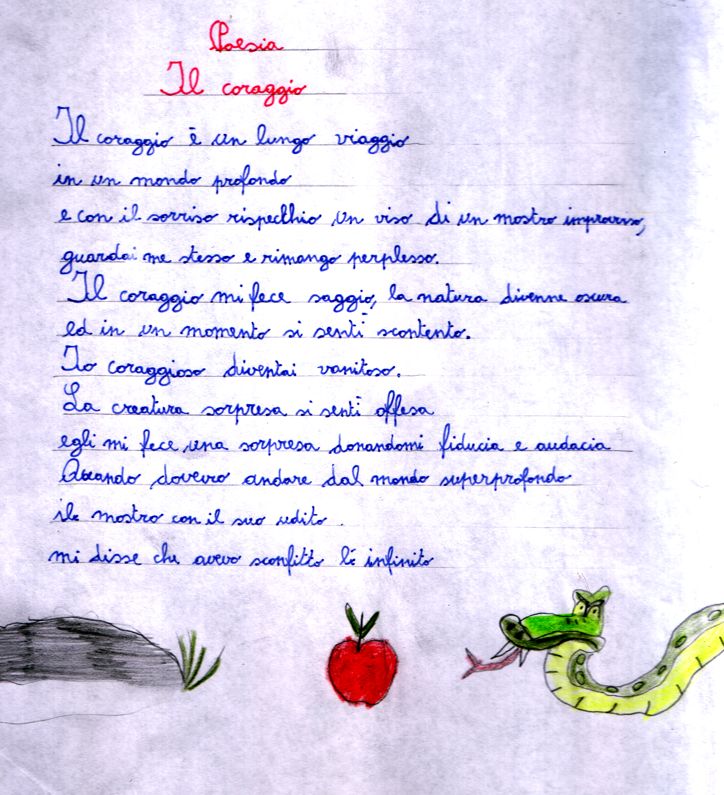 Poesia
Il coraggio
Il coraggio è un lungo viaggio
in un mondo profondo
e con il sorriso rispecchio un viso di un mostro improvviso,
guardai me stesso e rimango perplesso.
Il coraggio mi fece saggio, la natura divenne oscura
ed in un momento si sentì scontento.
Io coraggioso diventai vanitoso.
La creatura sorpresa si sentì offesa
egli mi fece una sorpresa donandomi fiducia e audacia
Quando dovevo andare dal mondo superprofondo
il mostro con il suo udito
mi disse che avevo sconfitto l'infinito